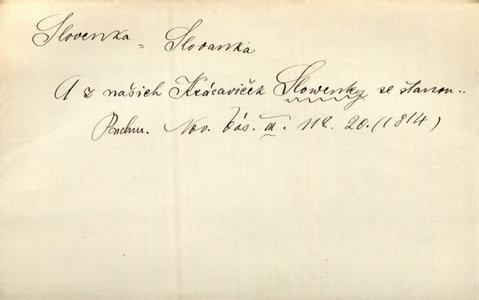 Slovenka = Slovanka
A z našich Krásaviček Slowenky se stanou..
Puchm. Nov. bás. III. 118. 20. (1814)